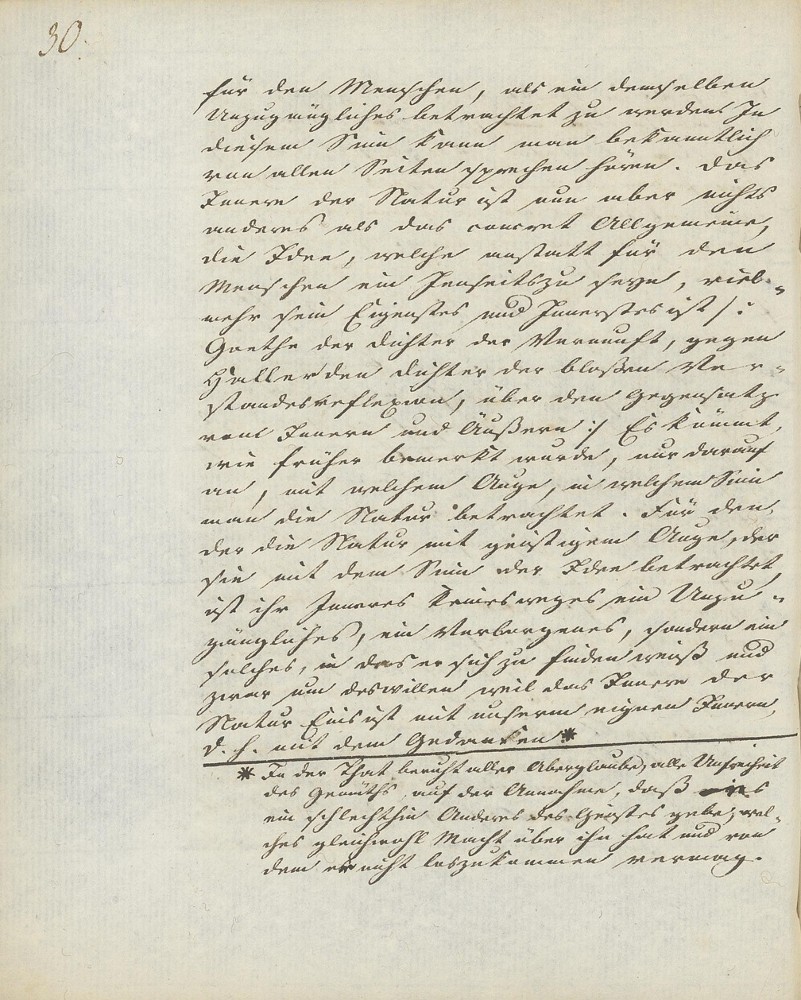 30.
für den Menschen, als ein demselben
Unzugängliches betrachtet zu werden. In
diesem Sinn kann man bekanntlich
von allen Seiten sprechen hören. Das
Innere der Natur ist nun aber nichts
anderes als das concret Allgemeine,
die Idee, welche anstatt für den
Menschen ein Jenseits zu seyn, viel-
mehr sein Eigenstes und Innerstes ist /:
Goethe der Dichter der Vernunft, gegen
Haller den Dichter der bloßen Ver-
standesreflexion, über den Gegensatz
vom Innern und Äußern :/ Es kömmt,
wie früher bemerkt wurde, nur darauf
an, mit welchem Auge, in welchem Sinn
man die Natur betrachtet. Für den,
der die Natur mit geistigem Auge, der
sie mit dem Sinn der Idee betrachtet,
ist ihr Inneres keinesweges ein Unzu-
gängliches, ein Verborgenes, sondern ein
solches, in das er sich zu finden weiß und
zwar um deswillen weil das Innere der
Natur Eins ist mit unserm eignen Innern,
d. h. mit dem Gedanken *
* In der That beruht aller Aberglaube, alle Unfreiheit
des Gemüths auf der Annahme, daß es
ein schlechthin Anderes des Geistes gebe, wel-
ches gleichwohl Macht über ihn hat und von
dem er nicht loszukommen vermag.